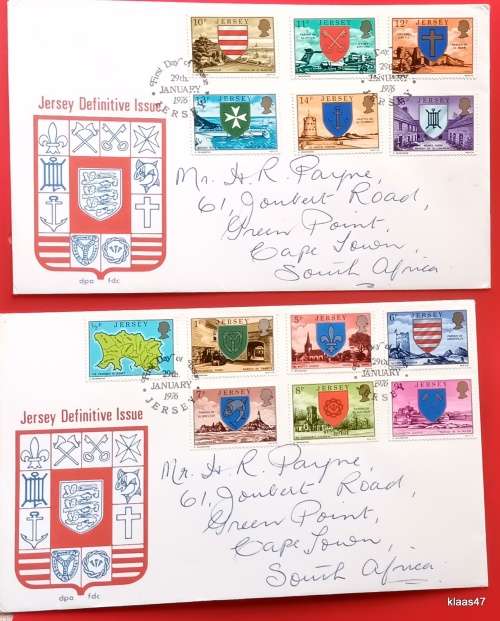 10p JERSEY
11p JERSEY
12p JERSEY
JERSEY
14p JERSEY
JERSEY
First Day of Issue
29th.
JANUARY
1976
JERSEY
29th.
JANUARY
1976
JERSEY
Jersey Definitive Issue
dpa fdc
Mr. H. R. Payne,
61, Joubert Road,
Green Point,
Cape Town,
South Africa.
½p JERSEY
1p JERSEY
5p JERSEY
6p JERSEY
7p JERSEY
8p JERSEY
JERSEY
29th.
JANUARY
1976
JERSEY
29th.
JANUARY
1976
JERSEY
Jersey Definitive Issue
dpa fdc
Mr. H. R. Payne,
61, Joubert Road,
Green Point,
Cape Town,
South Africa.
klaas47